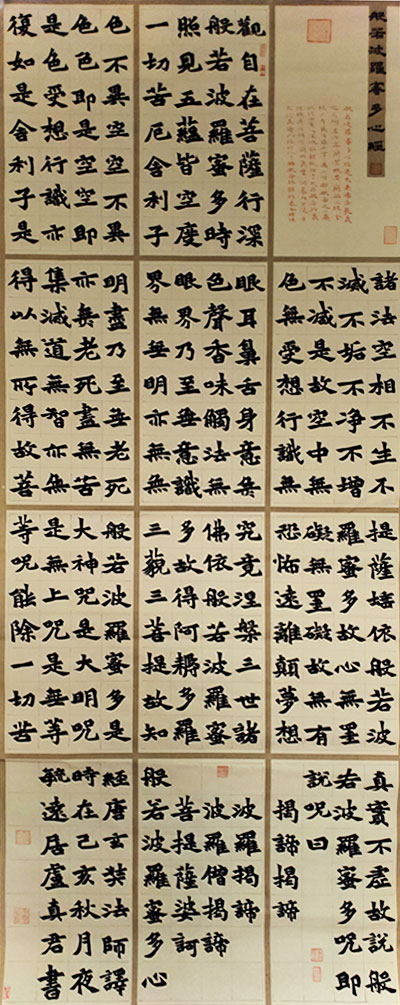 般若波羅蜜多心經
觀自在菩薩行深
般若波羅蜜多時
照見五蘊皆空度
一切苦厄舍利子
色不異空空不異
色色即是空空即
是色受想行識亦
復如是舍利子是
諸法空相不生不
滅不垢不净不增
不減是故空中無
色無受想行識無
眼耳鼻舌身意無
色聲香味觸法無
眼界乃至無意識
界無無明亦無無
明盡乃至無老死
亦無老死盡無苦
集滅道無智亦無
得以無所得故菩
提薩埵依般若波
羅蜜多故心無罣
礙無罣礙故無有
恐怖遠離顛夢想
究竟涅槃三世諸
佛依般若波羅蜜
多故得阿耨多羅
三藐三菩提故知
般若波羅蜜多是
大神咒是大明呪
是無上咒是無等
等呪能除一切苦
真實不虛故說般
若波羅蜜多呪即
說呪曰
揭諦揭諦
波羅揭諦
波羅僧揭諦
菩提薩婆訶
般若波羅蜜多心
經唐玄奘法師譯
時在己亥秋月夜
毓遠居廬真君書